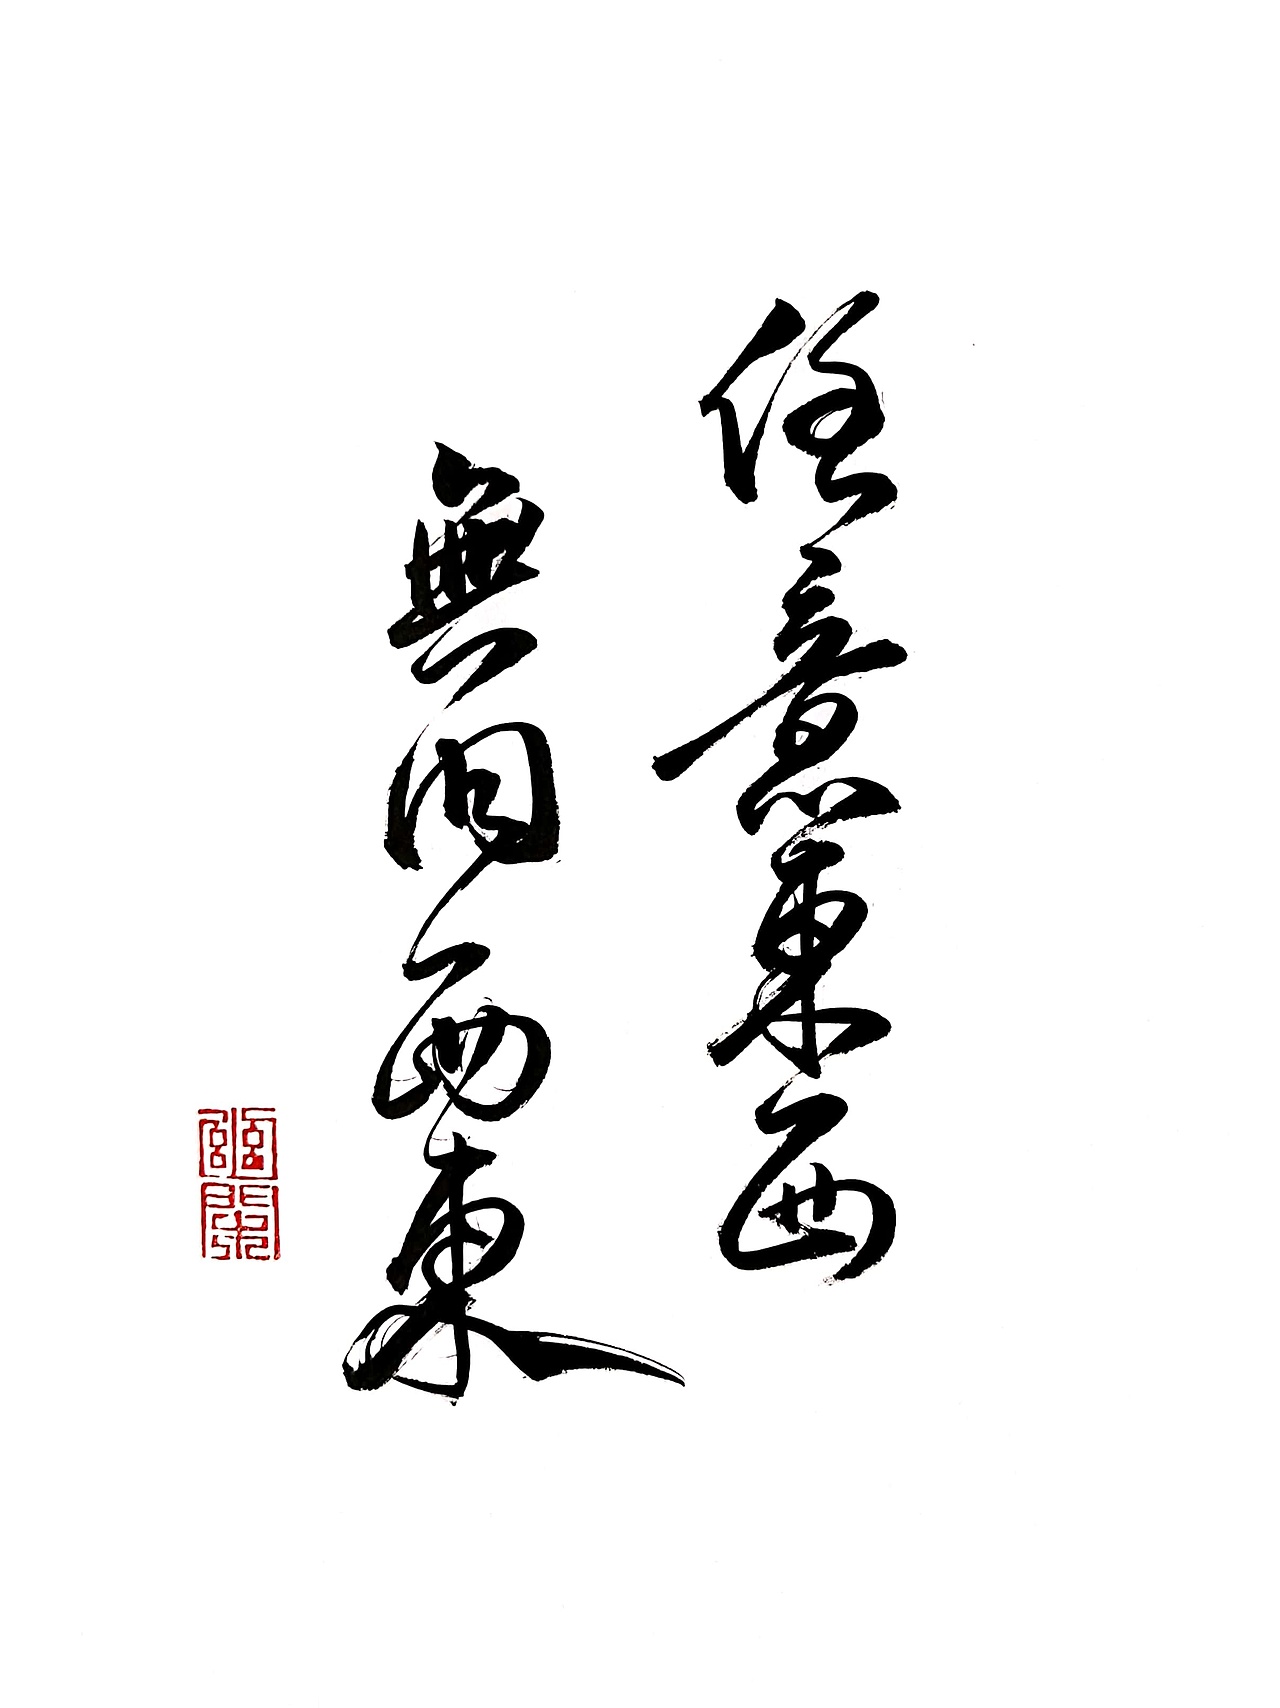 任意東西
無問西東